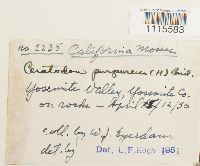 1115583
no. 2235 California Mosses
Ceratodon purpureus (H) Brid.
Yosemite Valley, Yosemite Co.
on rocks - April 12/50
coll. by W. J. Eyerdam
det. by Det. L.F. Koch 1951